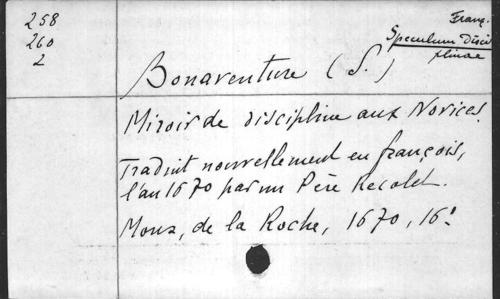 258
260
2
Franç.
Speculum disci
plinae
Bonaventure (S.)
Miroir de discipline aux Novices.
Traduit nouvellement en françois,
l'an 1670 par un Père Recolet.
Mons, de la Roche, 1670, 16!